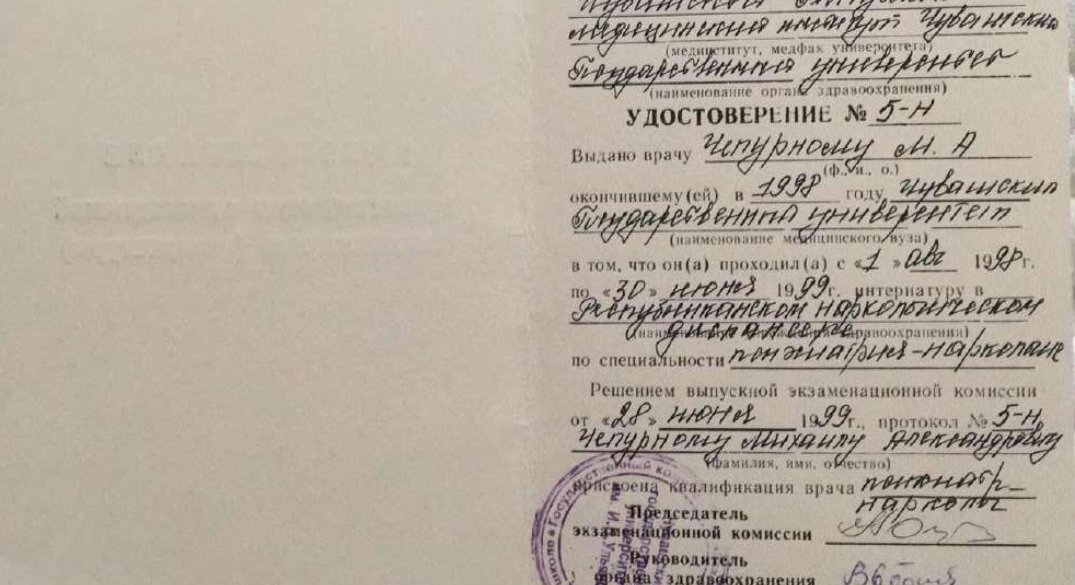 медицинский институт Чувашский
(мединститут, медфак университета)
Государственный университет
(наименование органа здравоохранения)
УДОСТОВЕРЕНИЕ № 5-Н
Выдано врачу Чепурному М. А
(ф., и., о.)
окончившему(ей) в 1998 году Чувашский
Государственный университет
(наименование медицинского вуза)
в том, что он(а) проходил(а) с «1» авг 1998г.
по «30» июня 1999г. интернатуру в
Республиканском наркологическом
диспансере
(наименование здравоохранения)
по специальности психиатрия-нарколог
Решением выпускной экзаменационной комиссии
от «28» июня 1999г., протокол № 5-н
Чепурному Михаилу Александровичу
(фамилия, имя, отчество)
присвоена квалификация врача психиатр-
нарколог
Председатель
экзаменационной комиссии
Руководитель
органа здравоохранения